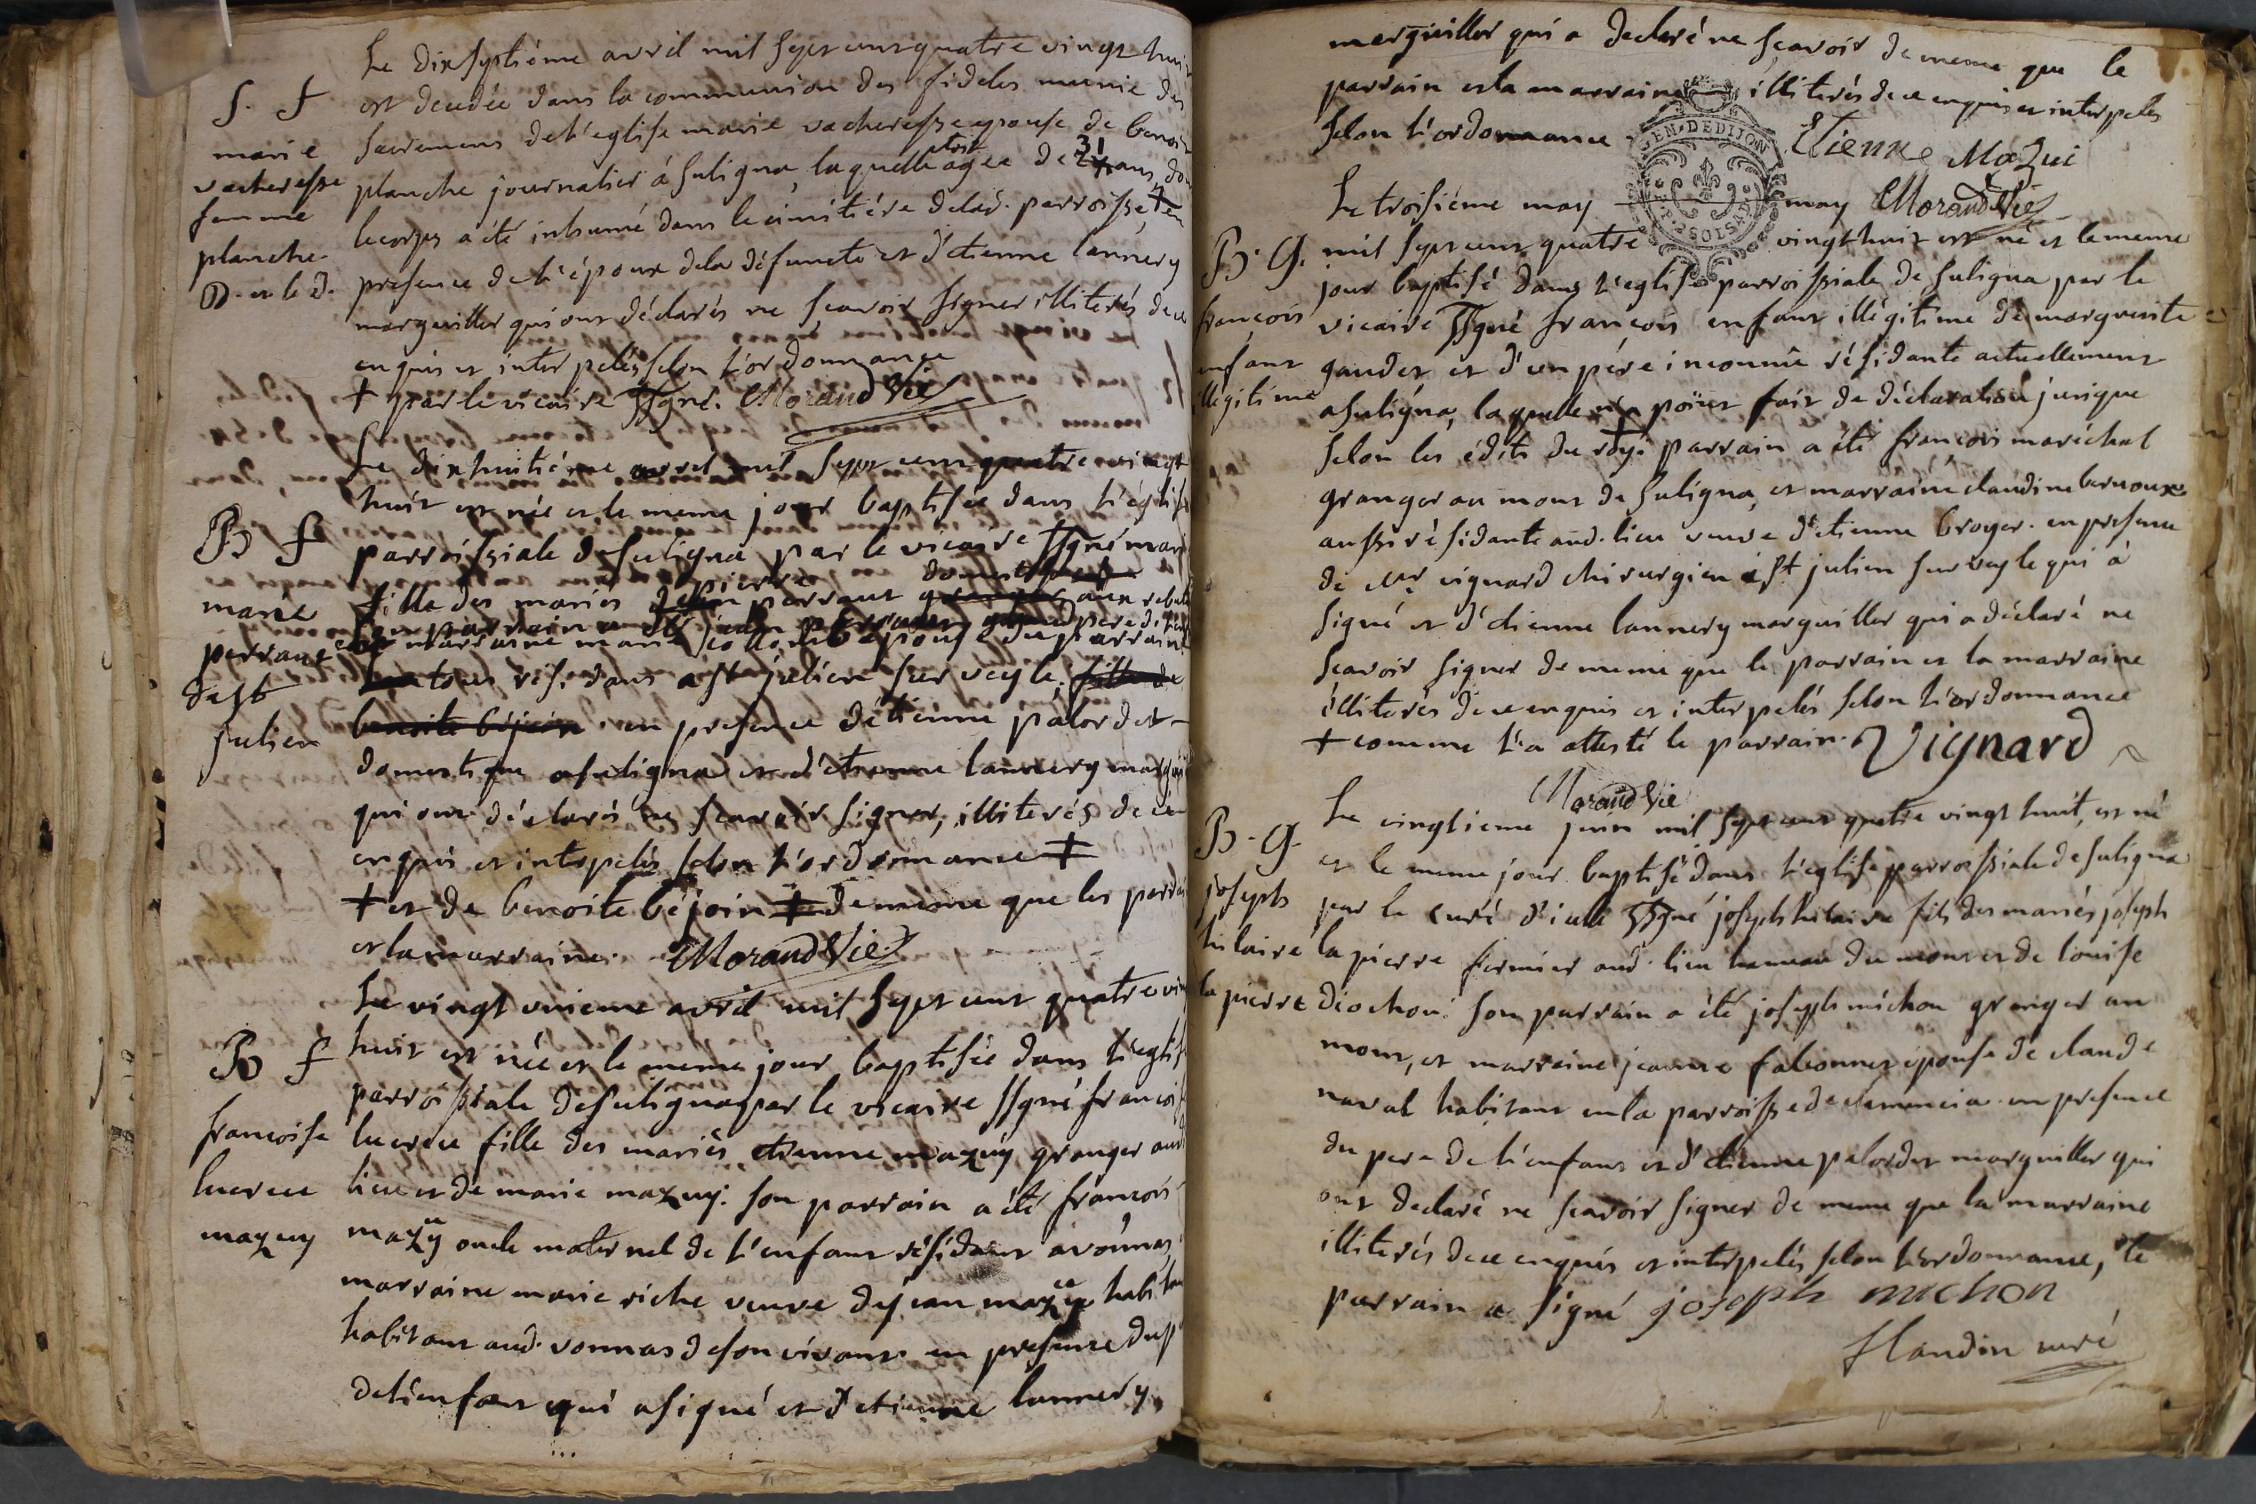 Le dixseptiéme avril mil sept cent quatre vingt huit
S. f est decedée dans la communion des fideles munie des
marie sacremens de l'eglise marie vacheresse epouse de benoit
vacheresse planche journalier á suligna, laquelle etoit agée de 31 ans, dont
femme le corps a été inhumé dans le cimitiére de lad. parroisse + en
planche presence de l'époux de la défuncte et d'étienne lannery
D. et le d. marguiller qui ont déclarés ne scavoir signer illiterés de ce
enquis et interpelés selon l'ordonnance
+ par le vicaire ssgné. Morand Vic
Le dixhuitiéme avril mil sept cent quatre vingt
huit est née et le meme jour baptisée dans l'église
B f parroissiale de suligna par le vicaire ssgné marie
marie fille des mariés pierre perraut domestique aux
perraut son parrain a été jean perraut
marraine marie épouse du parrain
de st tous rési. dans a st julien sur veyle, fille de
julien benoite béjoin en presence d'étienne palordet
domestique a suligna et d'étienne lannery marguiller
qui ont déclarés ne scavoir signer, illiterés de ce
enquis et interpelés selon l'ordonnance ‡
+ et de benoite béjoin ‡ de meme que les parrain
et la marraine. Morand Vic
Le vingt unieme avril mil sept cent quatre vingt
B f huit est née et le meme jour baptisée dans l'eglise
parroissiale de suligna par le vicaire ssgné francoise
francoise lucrece fille des mariés etienne mazuy granger aud.
lucrece lieu et de marie mazuy. son parrain a été francois
mazuy mazuy oncle maternel de l'enfant résidant a vonnas,
marraine marie riche veuve de jean mazuy habitant
habitant aud. vonnas de son vivant. en presence du p
de l'enfant qui a signé et d'etienne lannery,
marguiller qui a declaré ne scavoir de meme que le
parrain et la marraine illiterés de ce enquis et interpelés
selon l'ordonnance Etienne Mazui
GEN. DE DIJON
Le troisiéme may may Morand Vic
B. G. mil sept cent quatre vingt huit est né et le meme
jour baptisé dans l'eglise parroissiale de suligna par le
francois vicaire ssgné francois enfant illégitime de marguerite
enfant gaudet et d'un pére inconnû résidante actuellement
illegitime a suligna, laquelle n'a point fait de déclaration jurique
selon les édits du roy. + parrain a été francois maréchal
granger au mont de suligna, et marraine claudine bernoux
aussi résidante aud. lieu veuve d'etienne broyer. en presence
de mr vignard chirurgien a st julien sur veyle qui á
signé et d'étienne lannery marguiller qui a déclaré ne
scavoir signer de meme que le parrain et la marraine
illiterés de ce enquis et interpelés selon l'ordonnance
+ comme l'a attesté le parrain. Vignard
Morand Vic
Le vingtieme juin mil sept cent quatre vingt huit, est né
B. G. et le meme jour baptisé dans l'eglise parroissiale de suligna
joseph par le curé d'icelle ssgné joseph hilaire fils des mariés joseph
hilaire la pierre fermier aud. lieu hameau du mont et de louise
la pierre diochon. son parrain a été joseph michon granger au
mont, et marraine jeanne épouse de claude
naval habitant en la parroisse de clemencia. en presence
du pere de l'enfant et d'etienne palordet marguiller qui
ont declaré ne scavoir signer de meme que la marraine
illiterés de ce enquis et interpelés selon l'ordonnance, le
parrain a signé joseph michon
flandin curé